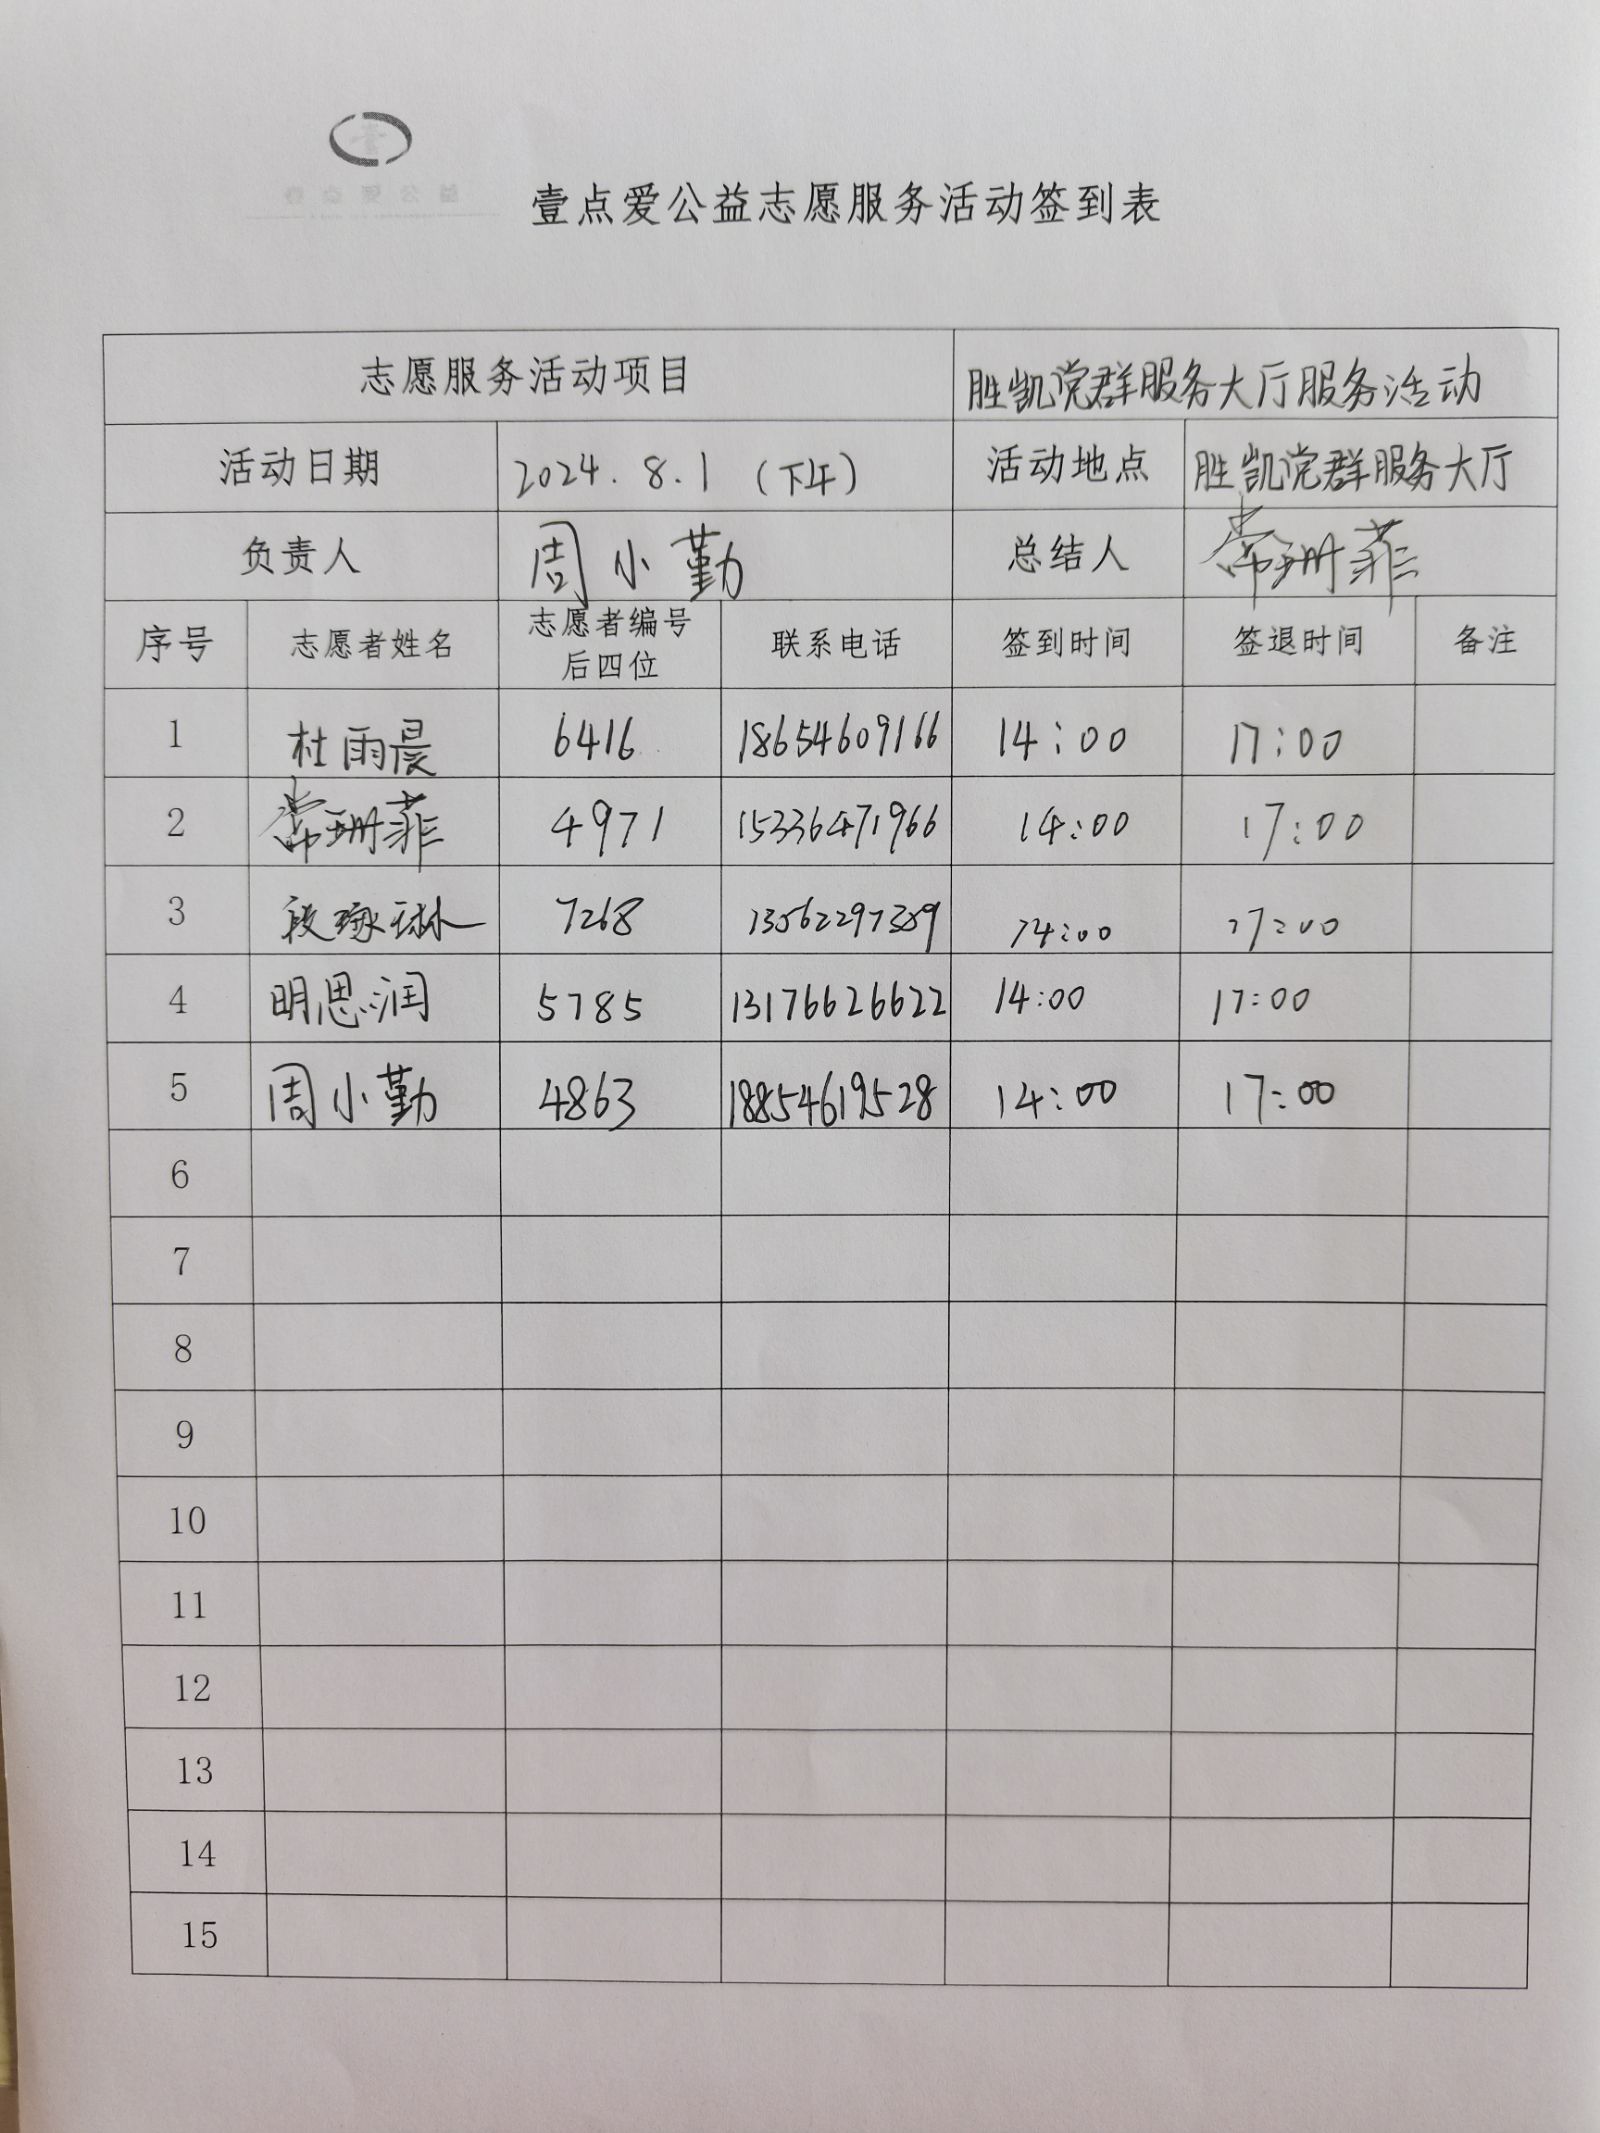 壹点爱公益志愿服务活动签到表
志愿服务活动项目 胜凯党群服务大厅服务活动
活动日期 2024.8.1 (下午) 活动地点 胜凯党群服务大厅
负责人 周小勤 总结人 常珊菲
序号 志愿者姓名 志愿者编号 联系电话 签到时间 签退时间 备注
后四位
1 杜雨晨 6416 18654609166 14:00 17:00
2 常珊菲 4971 15336471966 14:00 17:00
3 段琢琳 7268 14:00 17:00
4 明思润 5785 13176626622 14:00 17:00
5 周小勤 4863 18854619528 14:00 17:00
6
7
8
9
10
11
12
13
14
15